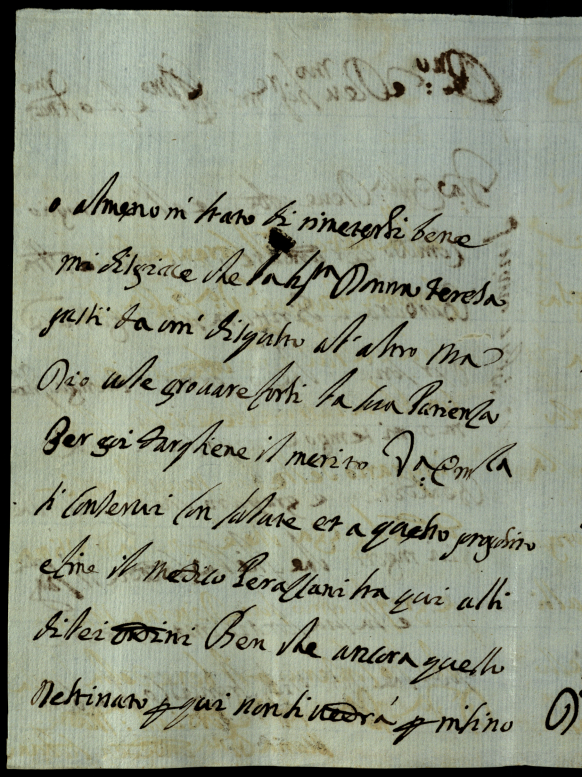 o almeno in stato di rimetersi bene
mi dispiace che la Sig.ra Donna Teresa
passi da un' disgusto al' altro ma
Dio vole provare forsi la sua Pacienza
Per poi dargliene il merito V.a Em.za
si conservi con salute et a questo proposito
il medico Perassani sta qui alli
di lei ordini Ben che ancora quello
destinato p qui non si vedrà p insino